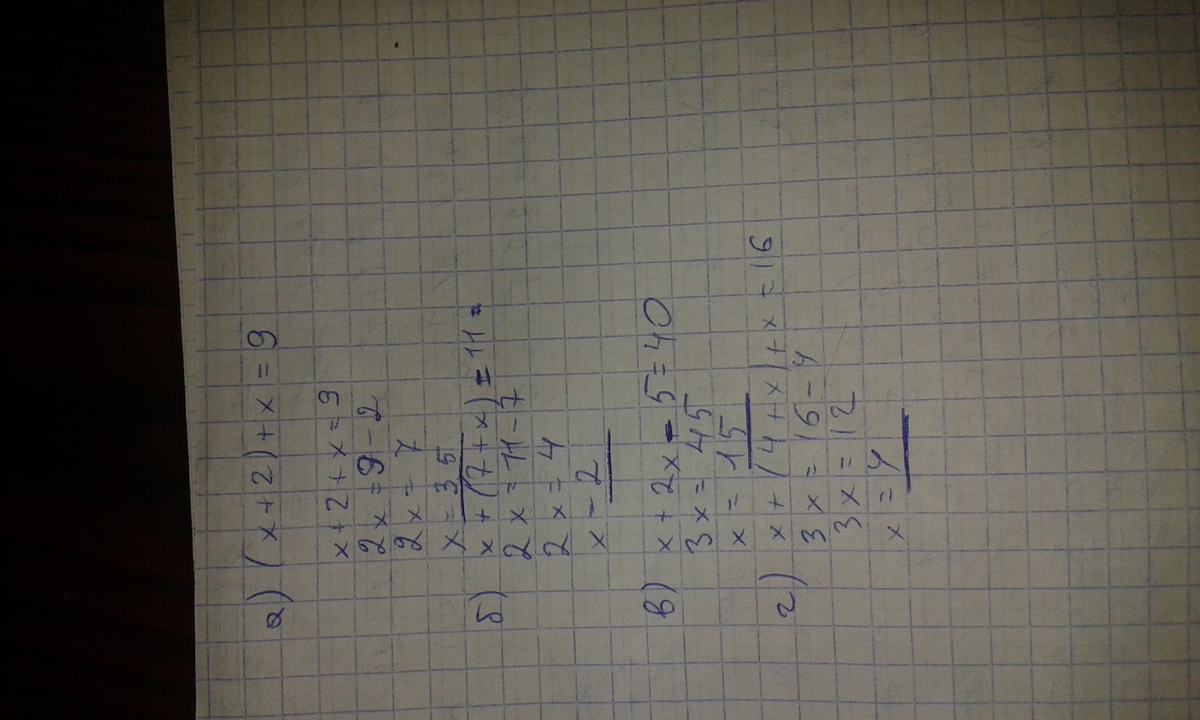 а) (x+2)+x=9
x+2+x=9
2x=9-2
2x=7
x=35
б) x+(7+x)=11
2x=11-7
2x=4
x-2
в) x+2x-5=40
3x=45
x=15
г) x+(4+x)+x=16
3x=16-4
3x=12
x=4